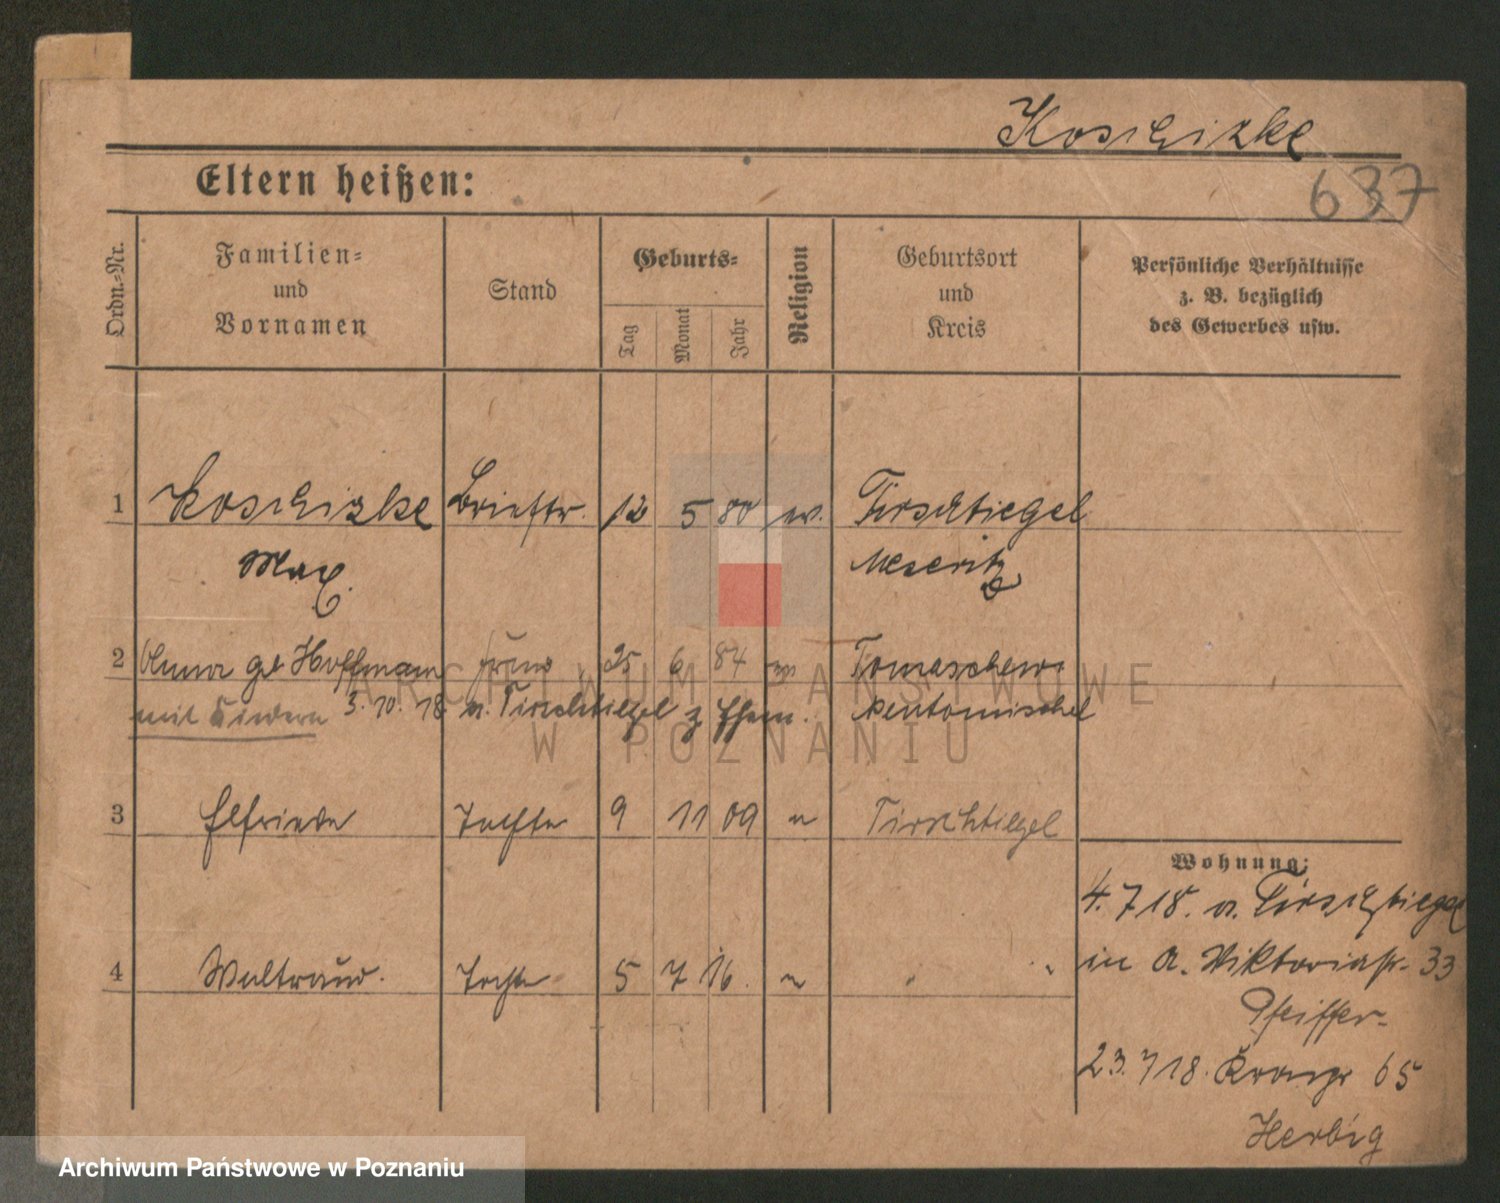 Koschizke
637
Eltern heißen:
Ordn.-Nr.
Familien-
und
Vornamen
Stand
Geburts-
Tag
Monat
Jahr
Religion
Geburtsort
und
Kreis
Persönliche Verhältnisse
z. B. bezüglich
des Gewerbes usw.
1 Koschizke Brieftr. 12 5 80 ev. Tirschtiegel
Max Meseritz
2 Anna geb Hoffmann Frau 25 6 84 Tomaschewo
mit Kindern 3.10.18 n. Tirschtiegel z Ehem. Neutomischel
3 Elfriede Tochter 9 11 09 " Tirschtiegel
Wohnung:
4.7.18. v. Tirschtiegel
4 Waltraud. Tochter 5 7 16. " " "
in A. Viktoriastr. 33
Pfeiffer.
23.7.18. 65
Herbig
ARCHIWUM PAŃSTWOWE
W POZNANIU
Archiwum Państwowe w Poznaniu